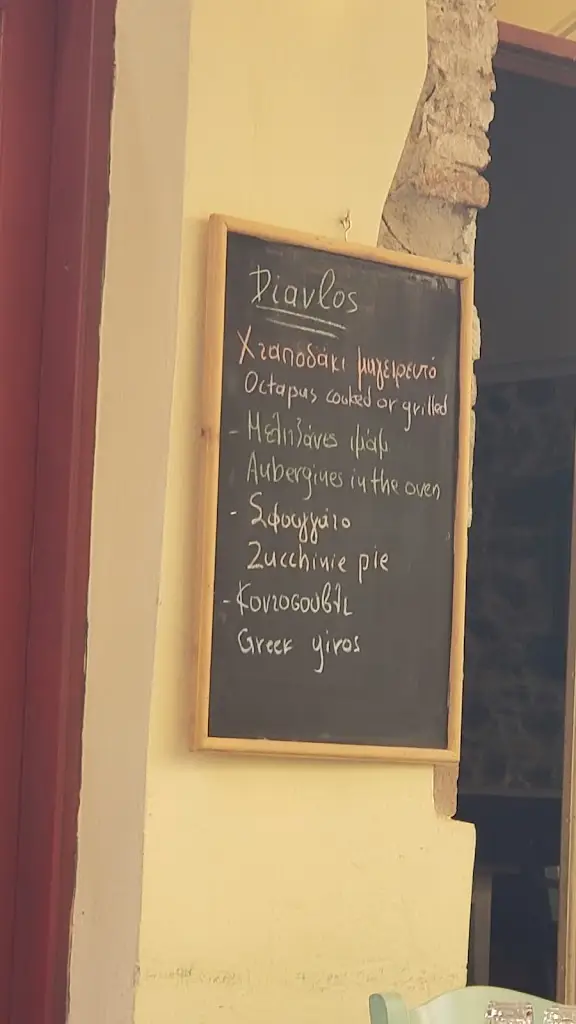 Diavlos
Χταποδάκι μαγειρευτό
Octapus cooked or grilled
- Μελιτζάνες ιμάμ
Aubergines in the oven
- Σφουγγάτο
Zucchinie pie
- Κοντοσουβλι
Greek yiros